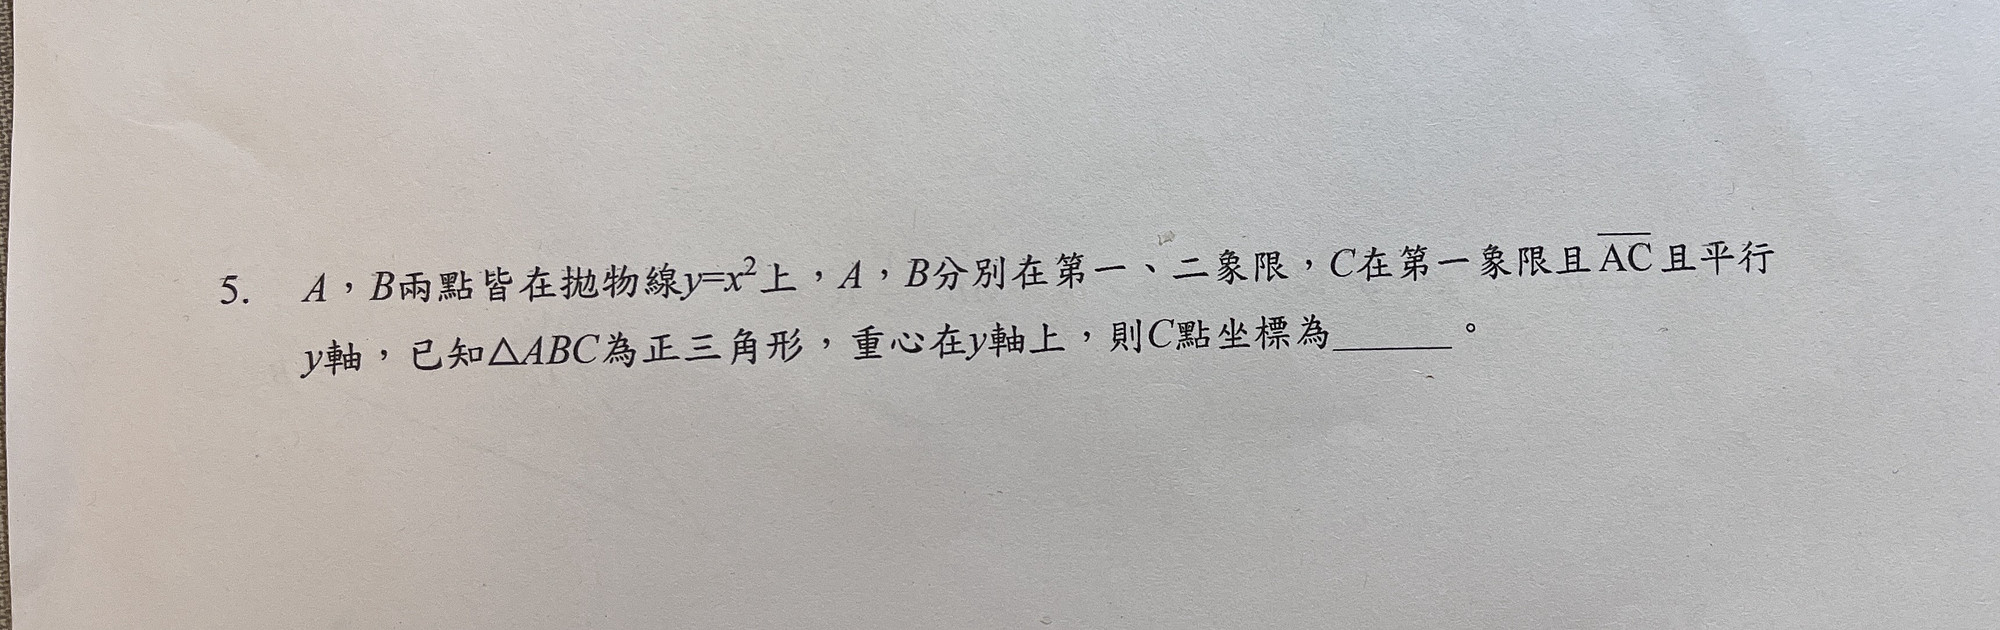 5. A，B兩點皆在拋物線y=x²上，A，B分別在第一、二象限，C在第一象限且AC且平行
y軸，已知△ABC為正三角形，重心在y軸上，則C點坐標為______。